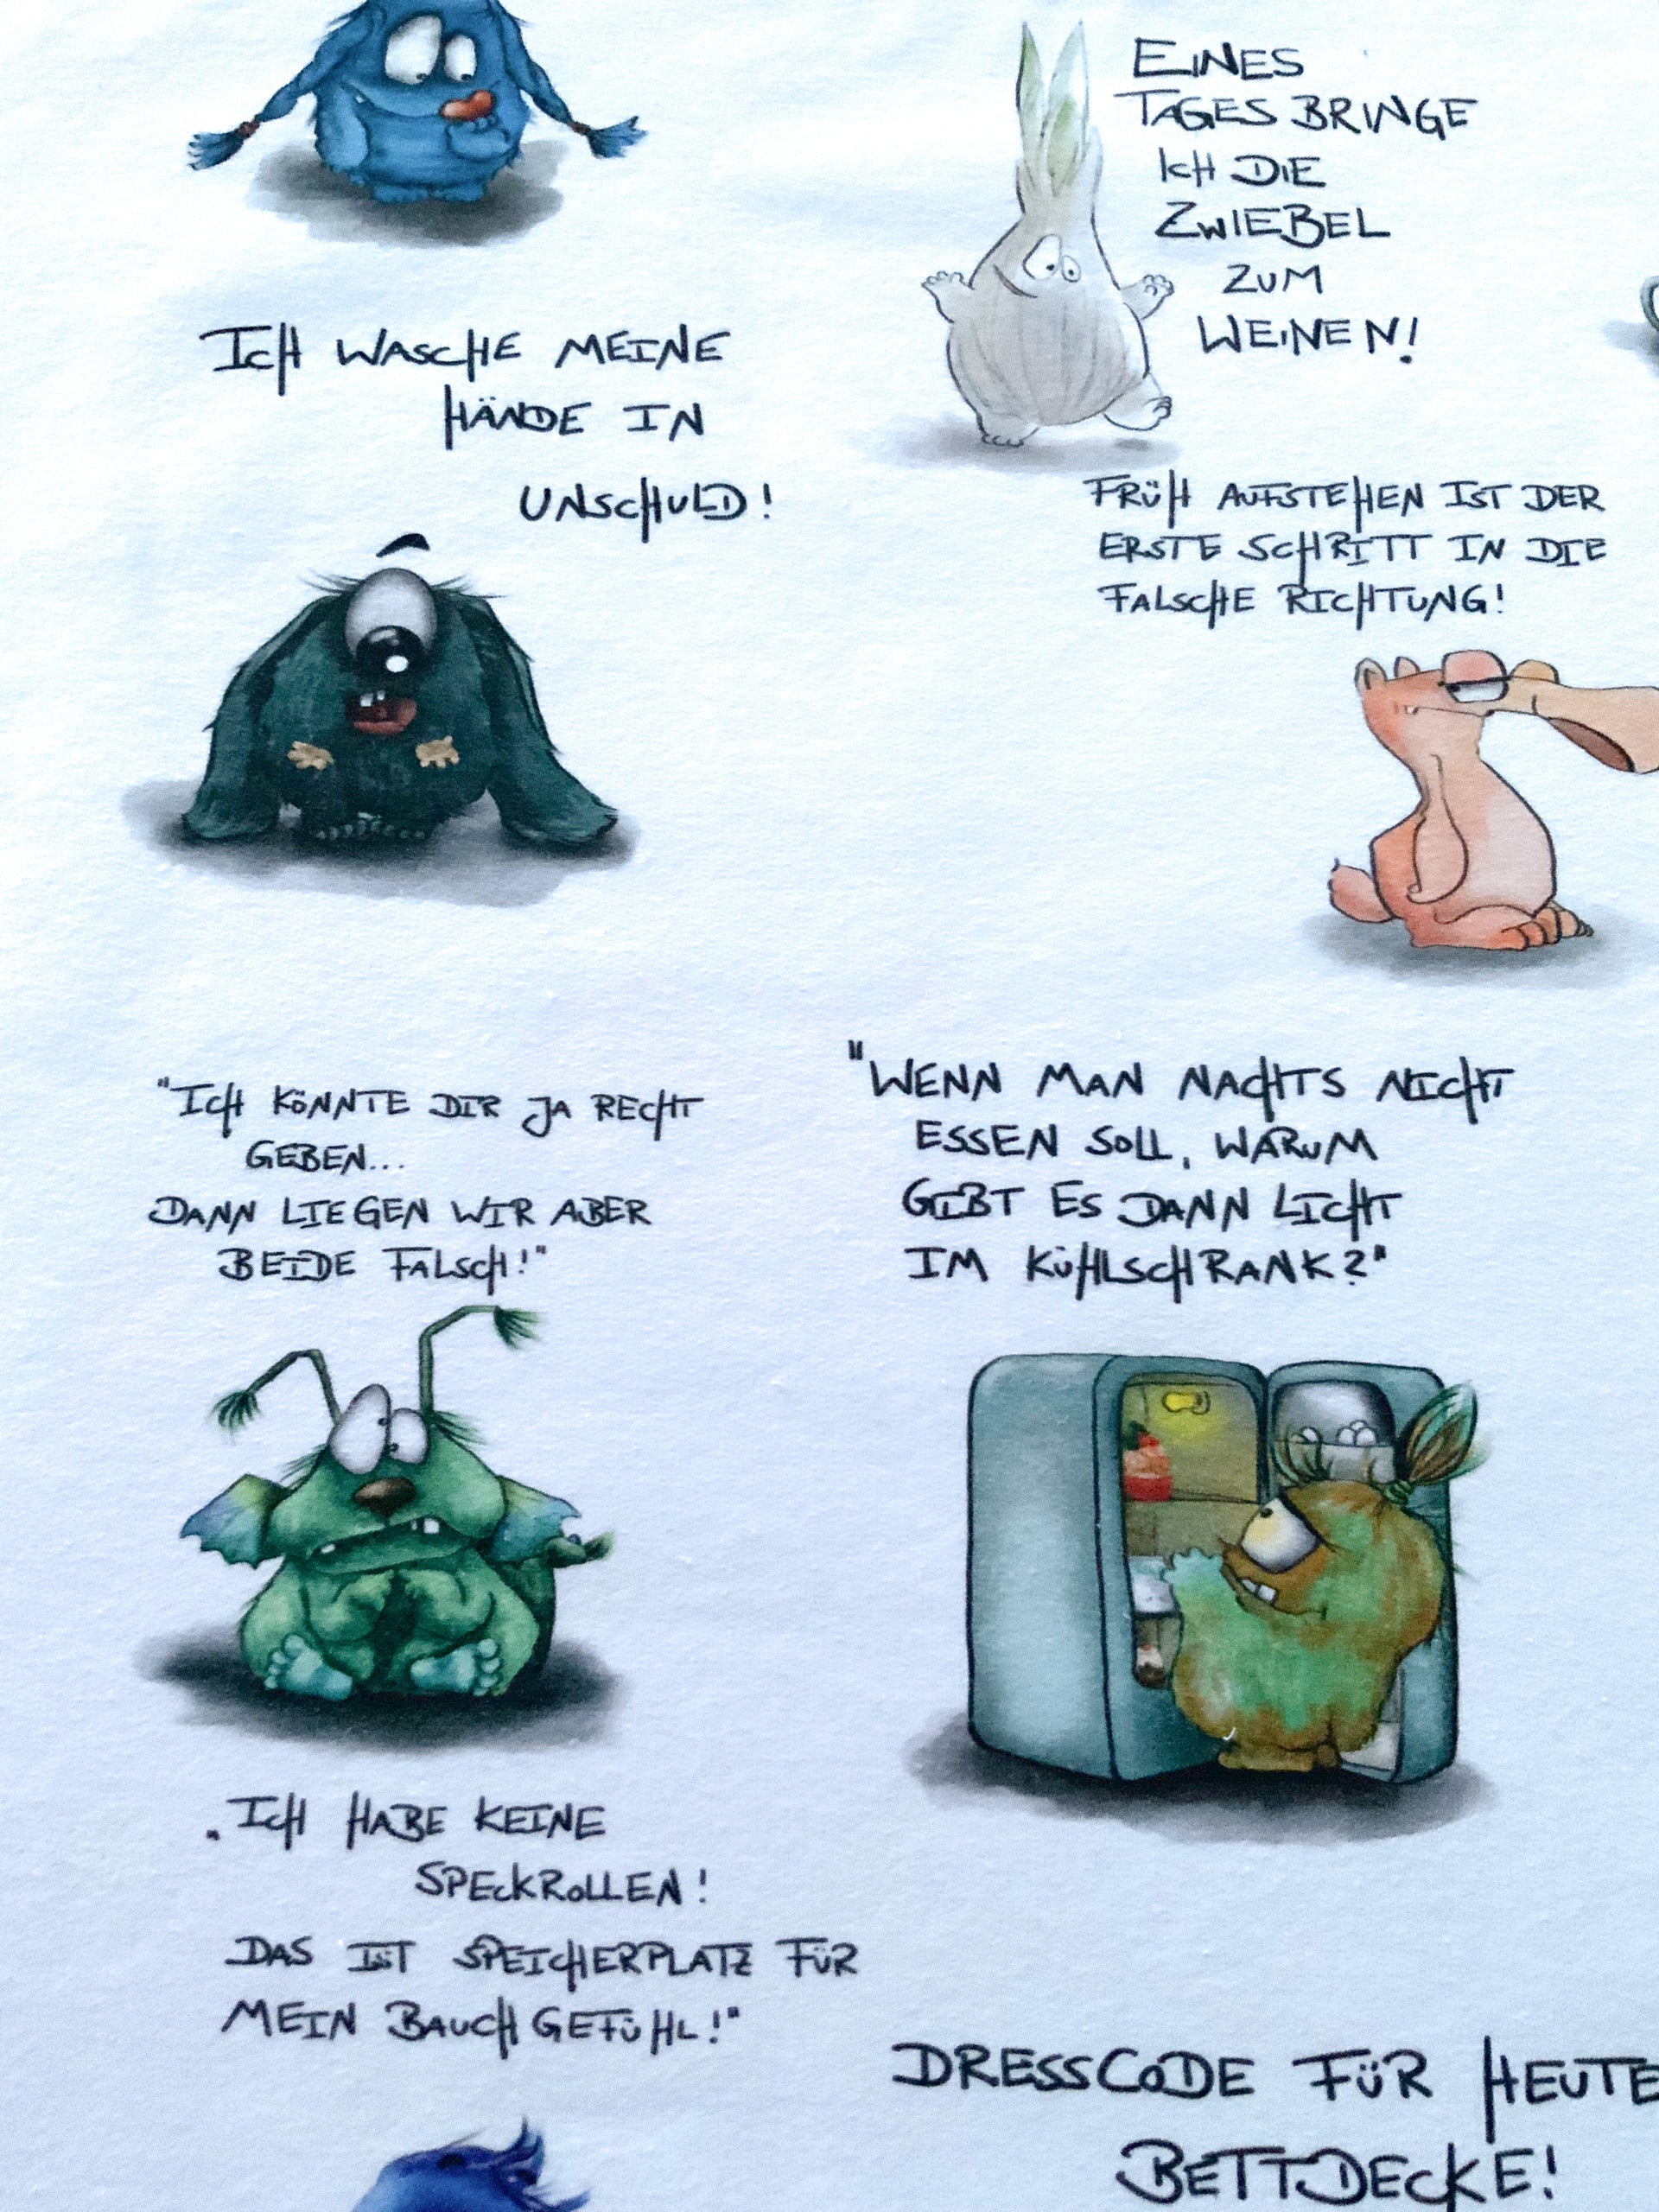 EINES
TAGES BRINGE
ICH DIE
ZWIEBEL
ZUM
WEINEN!
ICH WASCHE MEINE
HÄNDE IN
UNSCHULD!
FRÜH AUFSTEHEN IST DER
ERSTE SCHRITT IN DIE
FALSCHE RICHTUNG!
"ICH KÖNNTE DIR JA RECHT
GEBEN...
DANN LIEGEN WIR ABER
BEIDE FALSCH!"
"WENN MAN NACHTS NICHT
ESSEN SOLL, WARUM
GIBT ES DANN LICHT
IM KÜHLSCHRANK?"
"ICH HABE KEINE
SPECKROLLEN!
DAS IST SPEICHERPLATZ FÜR
MEIN BAUCHGEFÜHL!"
DRESSCODE FÜR HEUTE
BETTDECKE!